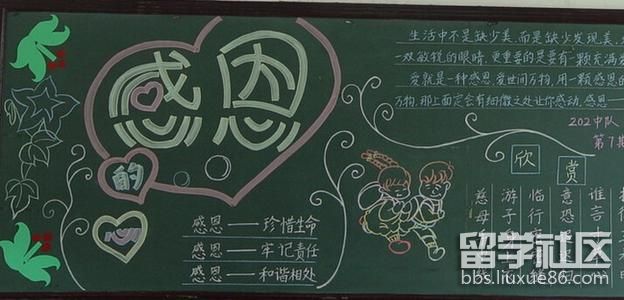 感恩
的
心
生活中不是缺少美,而是缺少发现美
双敏锐的眼睛,更重要的是要有一颗充满
爱就是一种感恩,爱世间万物,用一颗感恩的
万物,那上面定会有细微之处让你感动,感恩——
202中队
第7期
感恩——珍惜生命
感恩——牢记责任
感恩——和谐相处
欣赏
慈母手
游子身
临行密密
意恐迟迟
谁言寸
留学社区
bbs.liuxue86.com